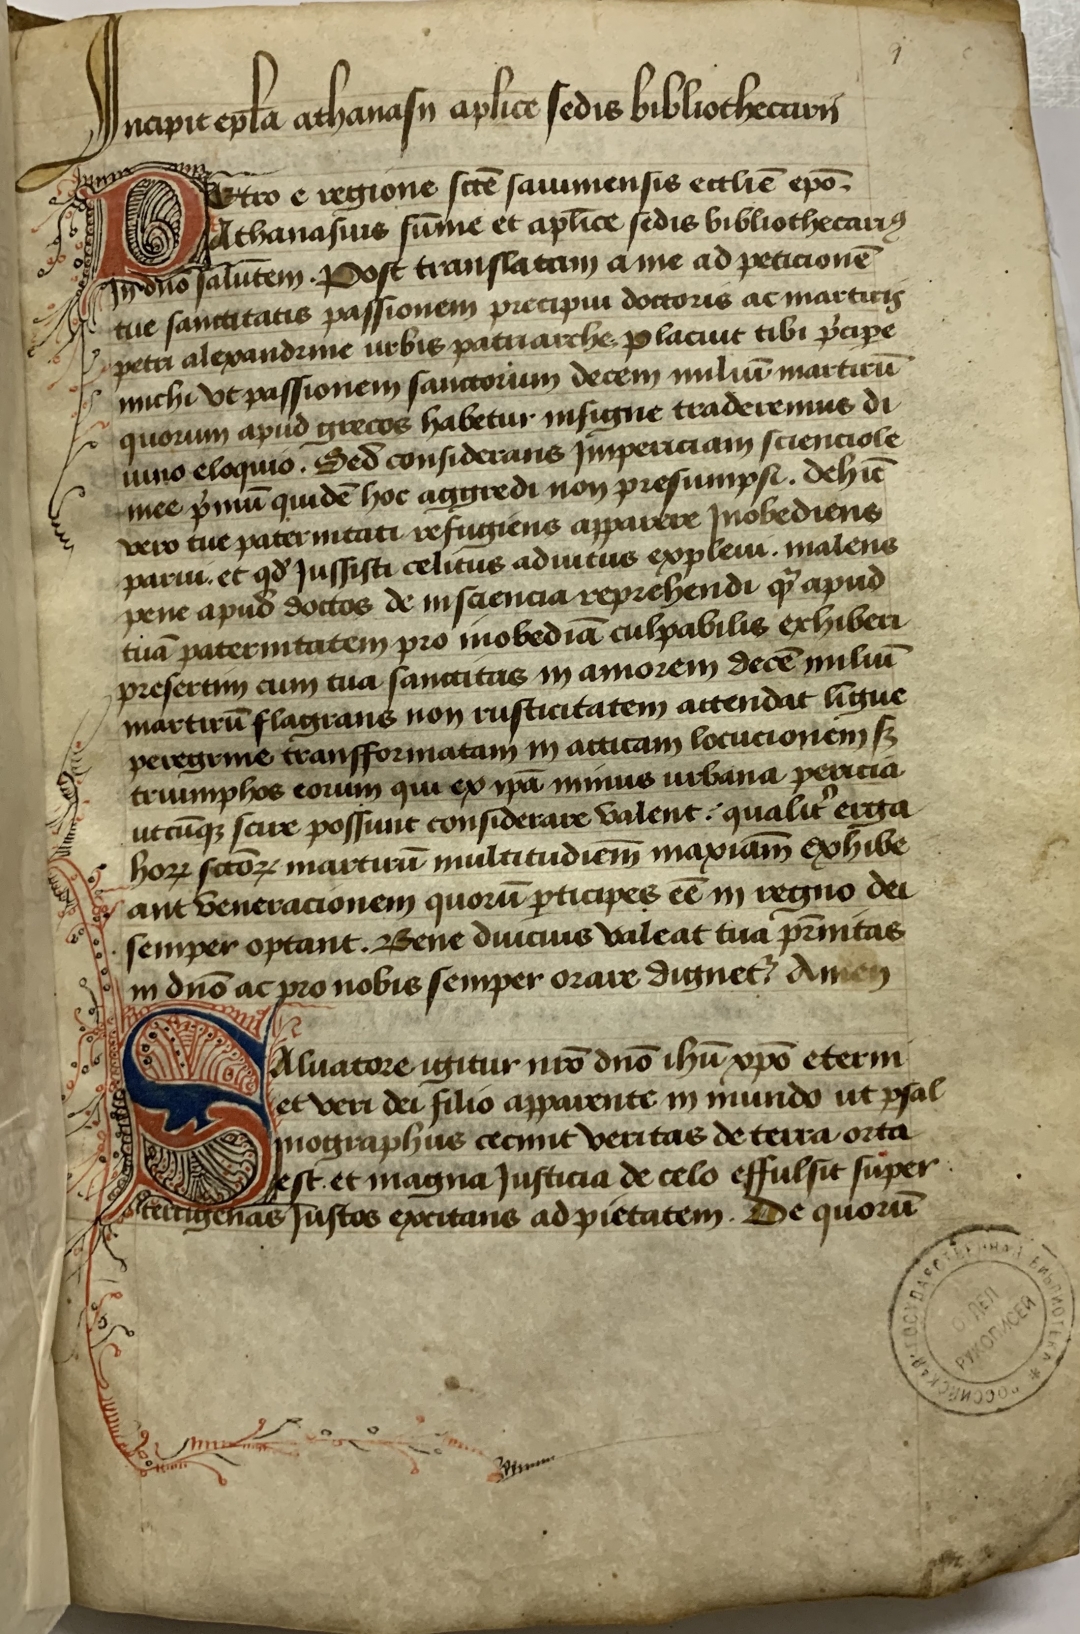 1
Incipit ep̄la athanasii aplice sedis bibliothecarii
Petro e regione sct̄e sauinensis eccl̄ie ep̄o.
Athanasius sūme et apl̄ice sedis bibliothecariꝰ
in dn̄o salutem. Post translatam a me ad peticionē
tue sanctitatis passionem precipui doctoris ac martiris
petri alexandrine urbis patriarche. Placiut tibi p̄cipe
michi vt passionem sanctorium decem miliuī martirū
quorum apud grecos habetur insigne traderemus di
uino eloquio. Sed considerans Imperitiam scienciole
mee p̄mū quidē hoc aggredi non presumpsi. dehīc
vero tue paternitati refugiens apparere Inobediens
parui. et qd̓ Jussisti celitus adiutus expleui. malens
pene apud doctos de insciencia reprehendi qᷓ apud
tuā paternitatem pro inobediā culpabilis exhiberi
presertim cum tua sanctitas in amorem decē miliū
martirū flagrans non rusticitatem attendat līgue
peregrine transfformatam in atticam locucionem sꝫ
triumphos eorum qui ex ip̄a minus urbana pericia
utcūqꝫ scire possunt considerare valent: qualit̓ erga
hoꝝ sctōꝝ martirū multitudinem̄ maxiām exhibe
ant veneracionem quorū ꝑticipes eē in regno dei
semper optant. Bene diucius valeat tua pr̄nitas
in dn̄o ac pro nobis semper orare dignet᷑. Amen
Saluatore igitur nr̄o dn̄o ih̄u xp̄o eterni
et veri dei filio apparente in mundo ut psal
mographus cecinit veritas de terra orta
est. et magna Justicia de celo effulsit super
terrigenas Justos excitans ad pietatem. De quorū
РОССИЙСКАЯ ГОСУДАРСТВЕННАЯ БИБЛИОТЕКА *
ОТДЕЛ
РУКОПИСЕЙ